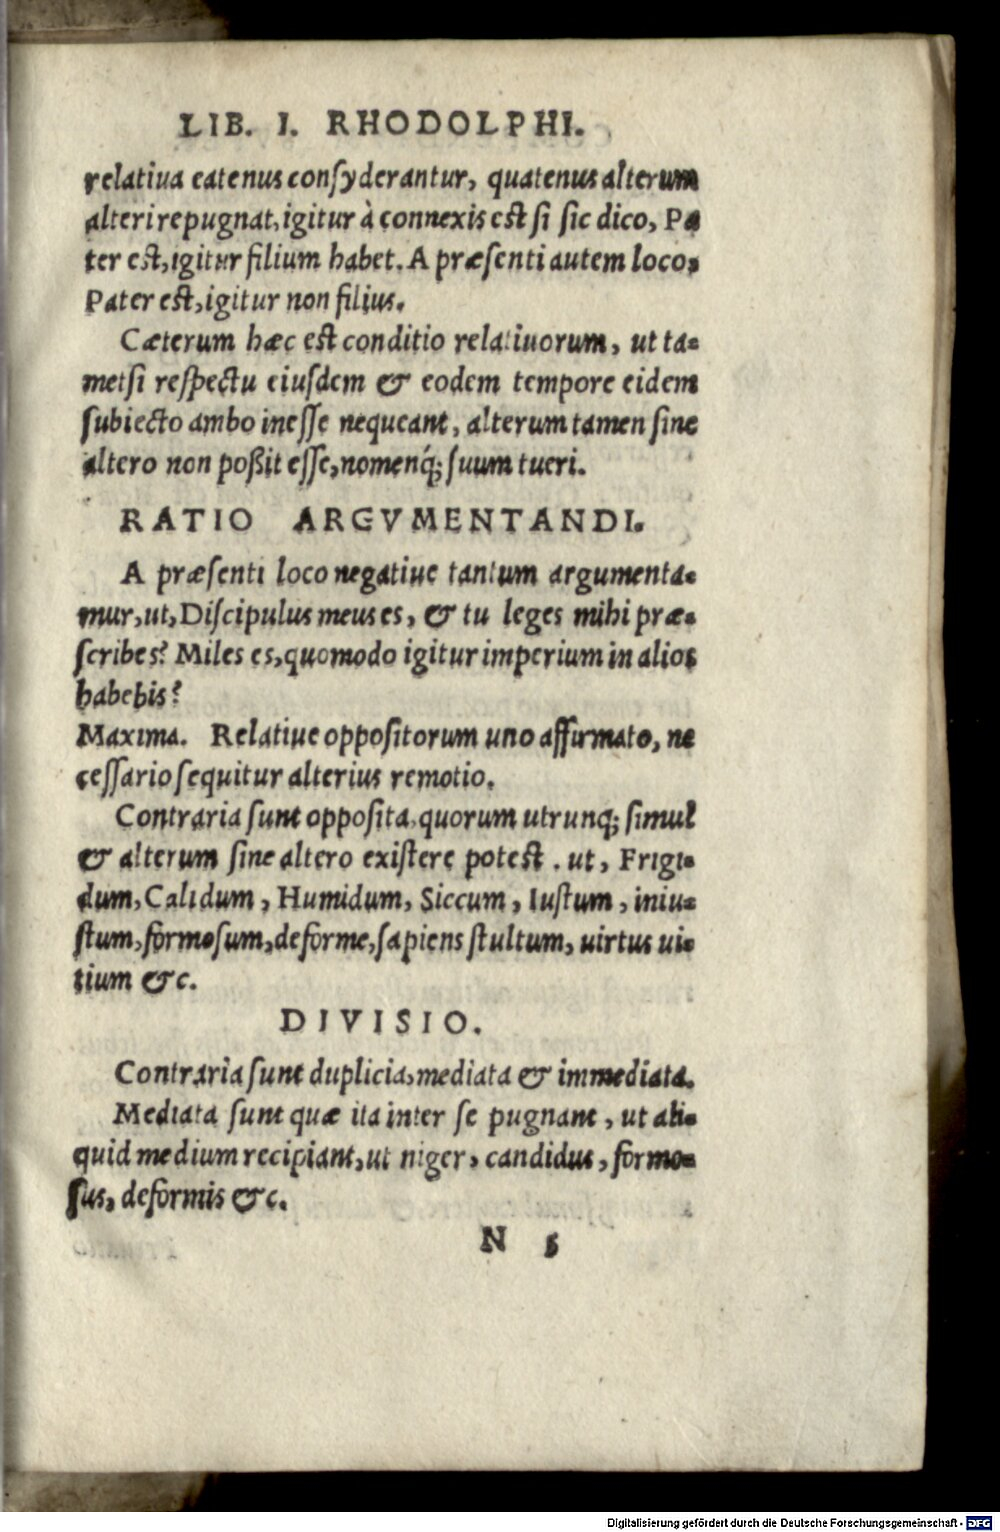 LIB. I. RHODOLPHI.
relatiua eatenus consyderantur, quatenus alterum
alteri repugnat, igitur à connexis est si sic dico, Pa
ter est, igitur filium habet. A præsenti autem loco,
Pater est, igitur non filius.
Cæterum hæc est conditio relatiuorum, ut ta-
metsi respectu eiusdem & eodem tempore eidem
subiecto ambo inesse nequeant, alterum tamen sine
altero non poßit esse, nomenq́; suum tueri.
RATIO ARGVMENTANDI.
A præsenti loco negatiue tantum argumenta-
mur, ut, Discipulus meus es, & tu leges mihi præ-
scribes? Miles es, quomodo igitur imperium in alios
habebis?
Maxima. Relatiue oppositorum uno affirmato, ne
cessario sequitur alterius remotio.
Contraria sunt opposita, quorum utrunq; simul
& alterum sine altero existere potest. ut, Frigi-
dum, Calidum, Humidum, Siccum, Iustum, iniu-
stum, formosum, deforme, sapiens stultum, uirtus ui-
tium &c.
DIVISIO.
Contraria sunt duplicia, mediata & immediata.
Mediata sunt quæ ita inter se pugnant, ut ali-
quid medium recipiant, ut niger, candidus, formo-
sus, deformis &c.
N 5
Digitalisierung gefördert durch die Deutsche Forschungsgemeinschaft - DFG